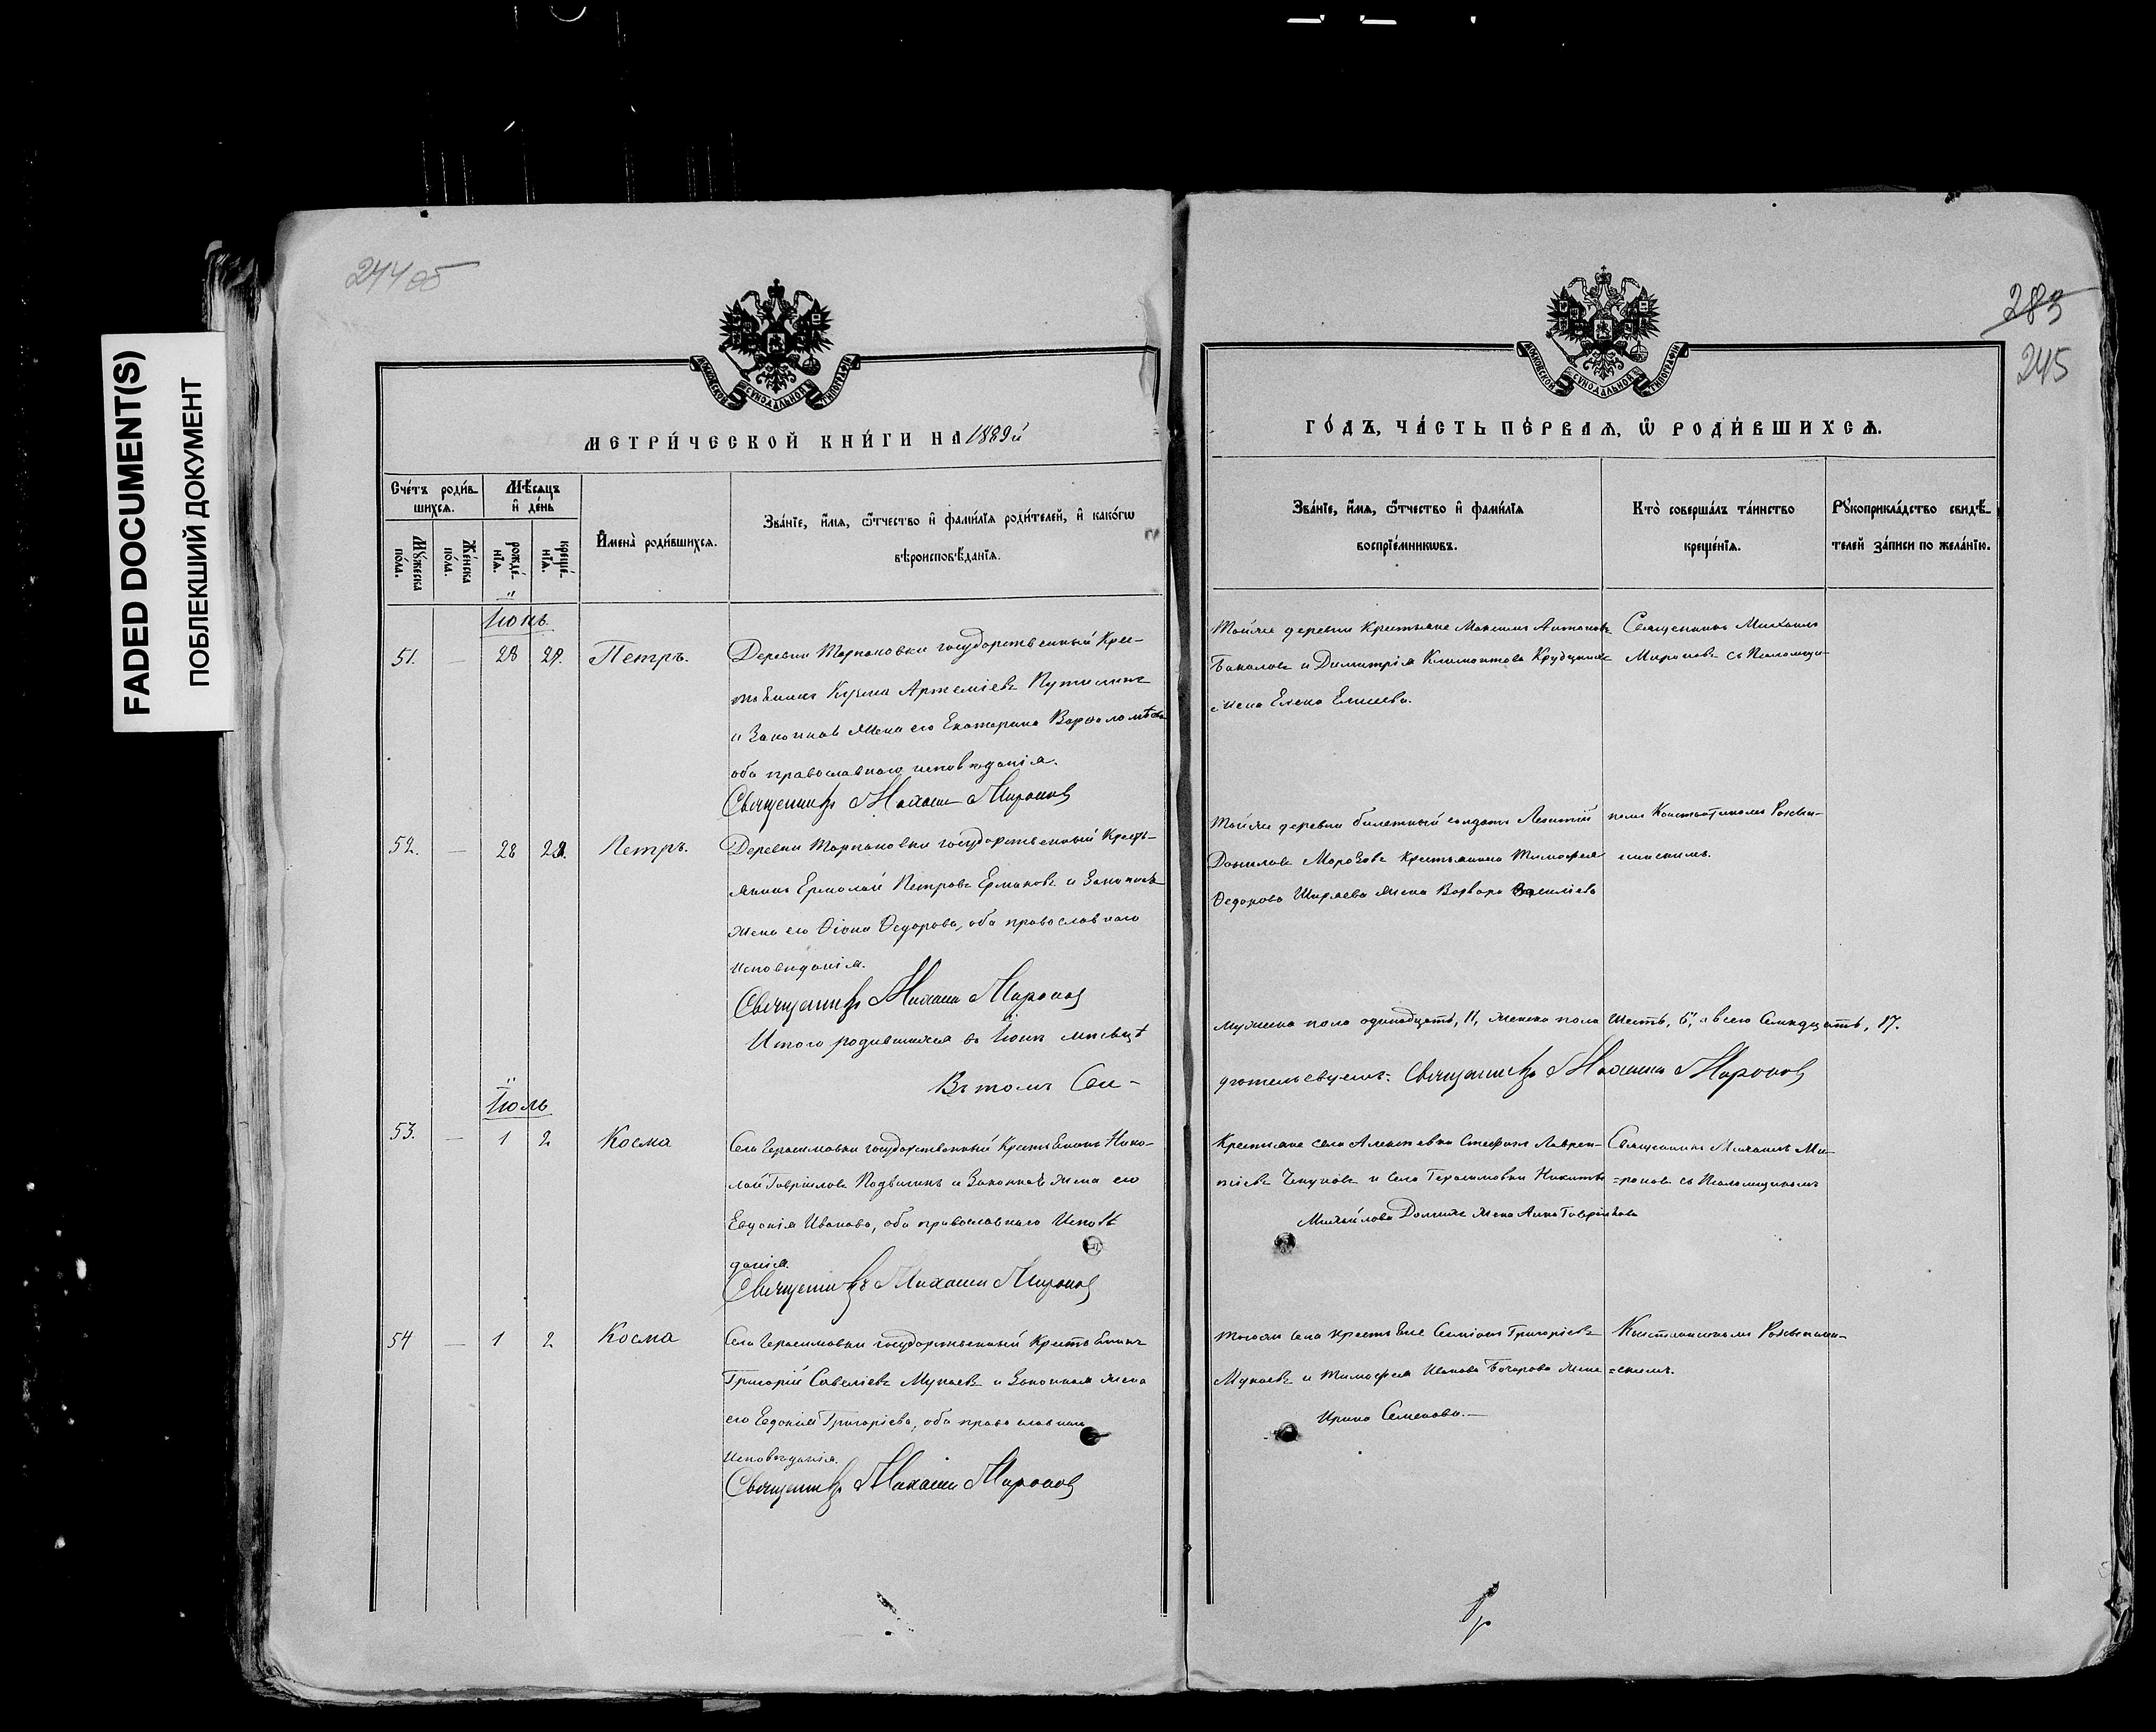 FADED DOCUMENT(S)
ПОБЛЕКШИЙ ДОКУМЕНТ
244 об
МОСКОВСКОЙ СѴНОДАЛЬНОЙ ТИПОГРАФІИ
МЕТРИ́ЧЕСКОЙ КНИ́ГИ НА 1889й
Сче́тъ роди́в-
шихсѧ.
Мѣ́сѧцъ
и҆ де́нь
Мꙋ́жеска
по́ла.
Же́нска
по́ла.
рожде́-
нїѧ.
креще́-
нїѧ.
И҆мена̀ роди́вшихсѧ.
Зва́нїе, и҆́мѧ, ѻ҆́тчество и҆ фами́лїѧ роди́телей, и҆ како́гѡ
вѣроисповѣ́данїѧ.
Іюнь
51. — 28 29. Петръ.
Деревни Тарпановки государственный Крес-
тьянинъ Кузма Артеміевъ Путилинъ
и Законная Жена его Екатерина Варѳоломѣева
оба православнаго исповѣданія.
Священникъ Михаилъ Мироновъ
52. — 28 29. Петръ.
Деревни Тарпановки государственный Кресть-
янинъ Ермолай Петровъ Ермаковъ и Законная
жена его Ѳіона Ѳедорова, оба православнаго
Исповѣданія.
Священникъ Михаилъ Мироновъ
Итого родившихся въ Іюнѣ мѣсяцѣ
Въ томъ Сви-
Іюль
53. — 1 2 Косма
Села Герасимовки государственный Крестьянинъ Нико-
лай Гавріиловъ Подвигинъ и Законная Жена его
Евдокія Иванова, оба православнаго Исповѣ
данія.
Священникъ Михаилъ Мироновъ
54 — 1 2 Косма
Села Герасимовки государственный Крестьянинъ
Григорій Савеліевъ Мукаевъ и Законная жена
его Евдокія Григоріева, оба православнаго
Исповѣданія.
Священникъ Михаилъ Мироновъ
283
245
МОСКОВСКОЙ СѴНОДАЛЬНОЙ ТИПОГРАФІИ
ГО́ДЪ, ЧА́СТЬ ПЕ́РВАѦ, Ѡ҆ РОДИ́ВШИХСѦ.
Зва́нїе, и҆́мѧ, ѻ҆́тчество и҆ фами́лїѧ
воспрїе́мникѡвъ.
Кто̀ соверша́лъ та́инство
креще́нїѧ.
Рꙋкоприкла́дство свидѣ́-
телей за́писи по жела́нїю.
Тойже деревни Крестьяне Максимъ Антоновъ
Бакаловъ и Димитрія Климантова
жена Елена Елисеева.
Священникъ Михаилъ
Мироновъ съ Псаломщи-
Тойже деревни билетный солдатъ Леонтій
Даниловъ Морозовъ Крестьянина Тимофея
Ѳедорова Ширяева жена Варвара Василіева
комъ Константиномъ
Мужеска пола одинадцать, 11, женска пола Шесть, 6, а всего Семнадцать, 17.
дѣтельствуемъ: Священникъ Михаилъ Мироновъ
Крестьяне села Алексѣевки Стефанъ Лаврен-
тіевъ и села Герасимовки Никиты
Михайлова жена Анна Гавріилова
Священникъ Михаилъ Ми-
=роновъ съ Псаломщикомъ
Тогоже села крестьяне Симіонъ Григоріевъ
Мукаевъ и Тимофея Иванова Бочарова жена
Ирина Семенова.—
Константиномъ
=скимъ.